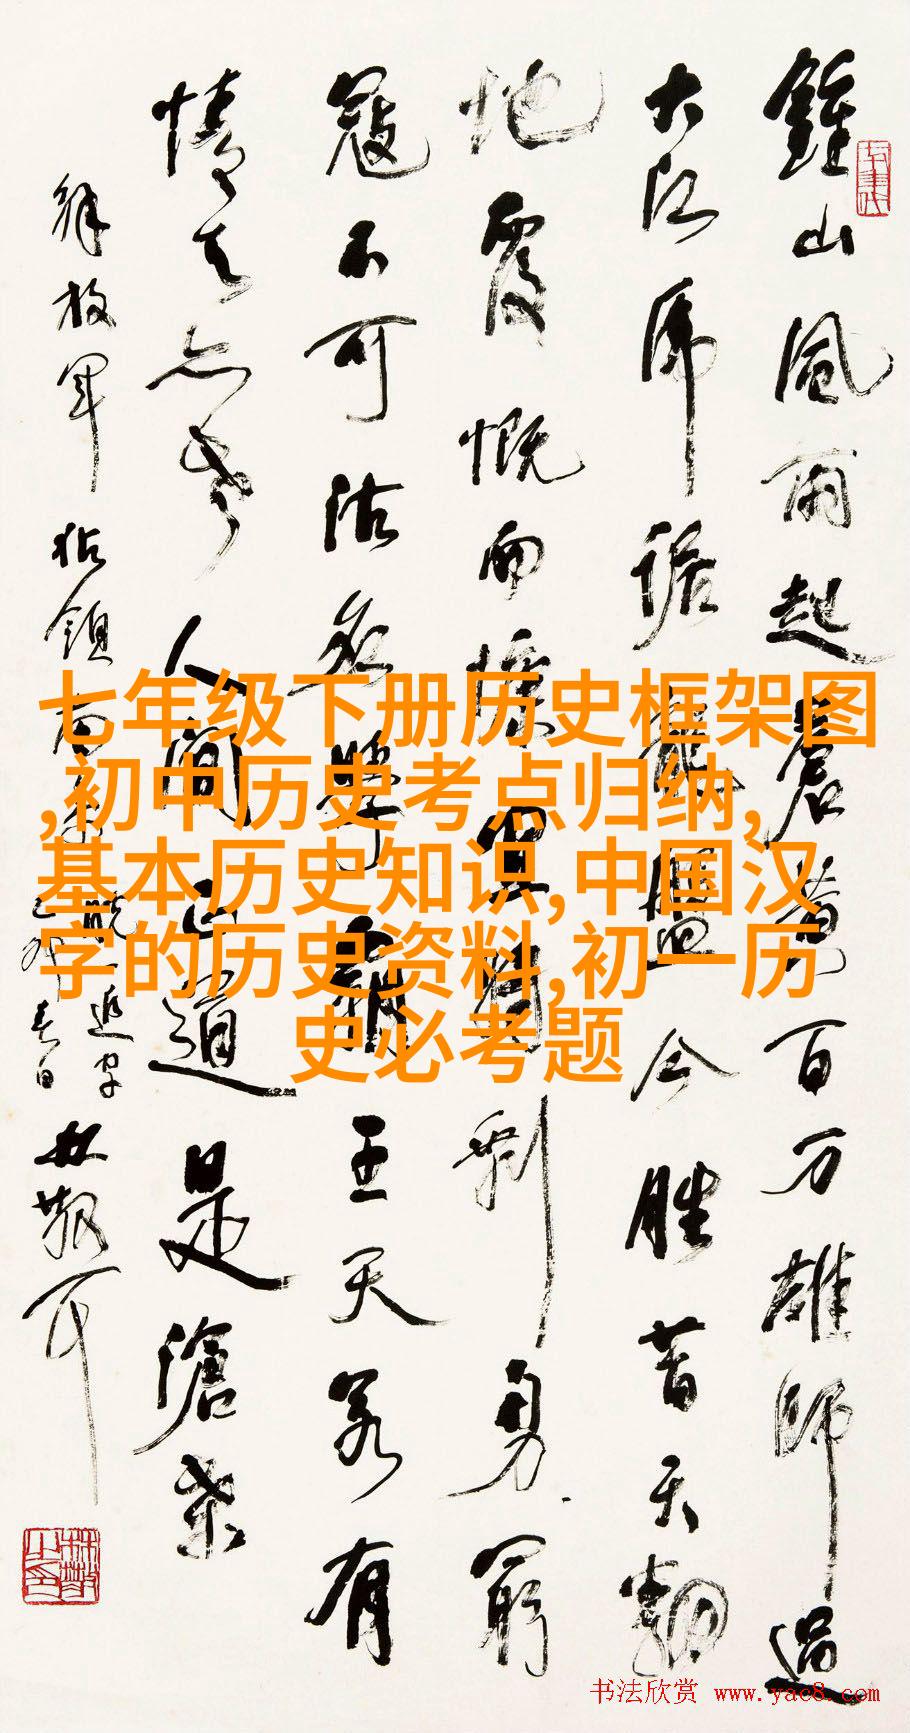 鍾山風雨起蒼黄百万雄師過
大江虎踞龍盤今勝昔天翻
地覆慨而慷宜將剩勇窮
寇不可沽名學霸王天若有
情天亦老人間正道是滄桑
解放軍佔領南京
春日
七年级下册历史框架图
,初中历史考点归纳,
基本历史知识,中国汉
字的历史资料,初一历
史必考题
书法欣赏 www.yac8.com